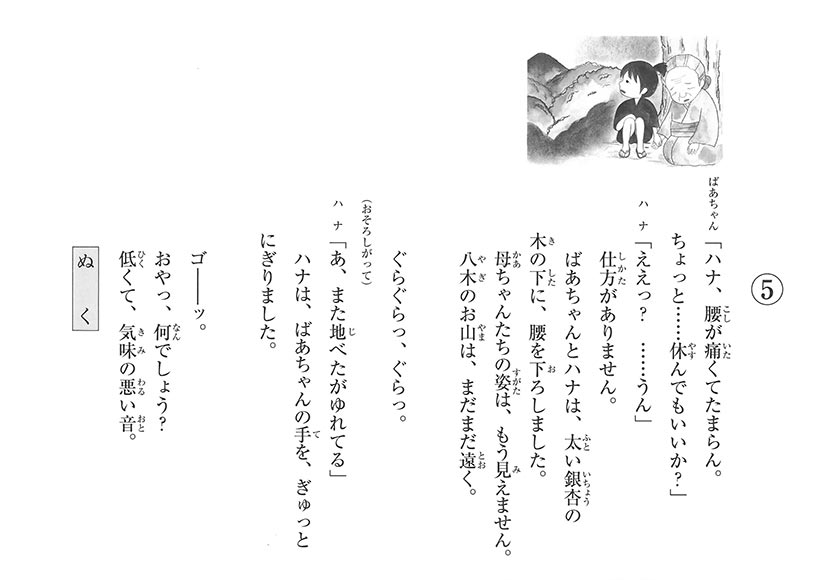 5
ばあちゃん「ハナ、腰が痛くてたまらん。
ちょっと……休んでもいいか？」
ハナ「ええっ？　……うん」
仕方がありません。
ばあちゃんとハナは、太い銀杏の
木の下に、腰を下ろしました。
母ちゃんたちの姿は、もう見えません。
八木のお山は、まだまだ遠く。
ぐらぐらっ、ぐらっ。
（おそろしがって）
ハナ「あ、また地べたがゆれてる」
ハナは、ばあちゃんの手を、ぎゅっと
にぎりました。
ゴーーッ。
おやっ、何でしょう？
低くて、気味の悪い音。
ぬく